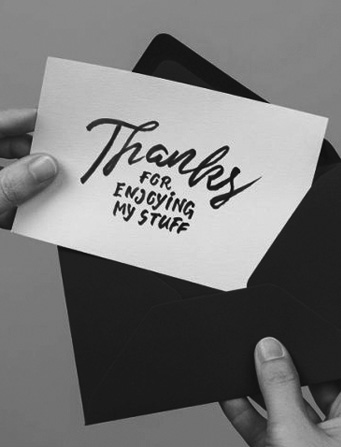 Thanks
FOR
ENJOYING
MY STUFF